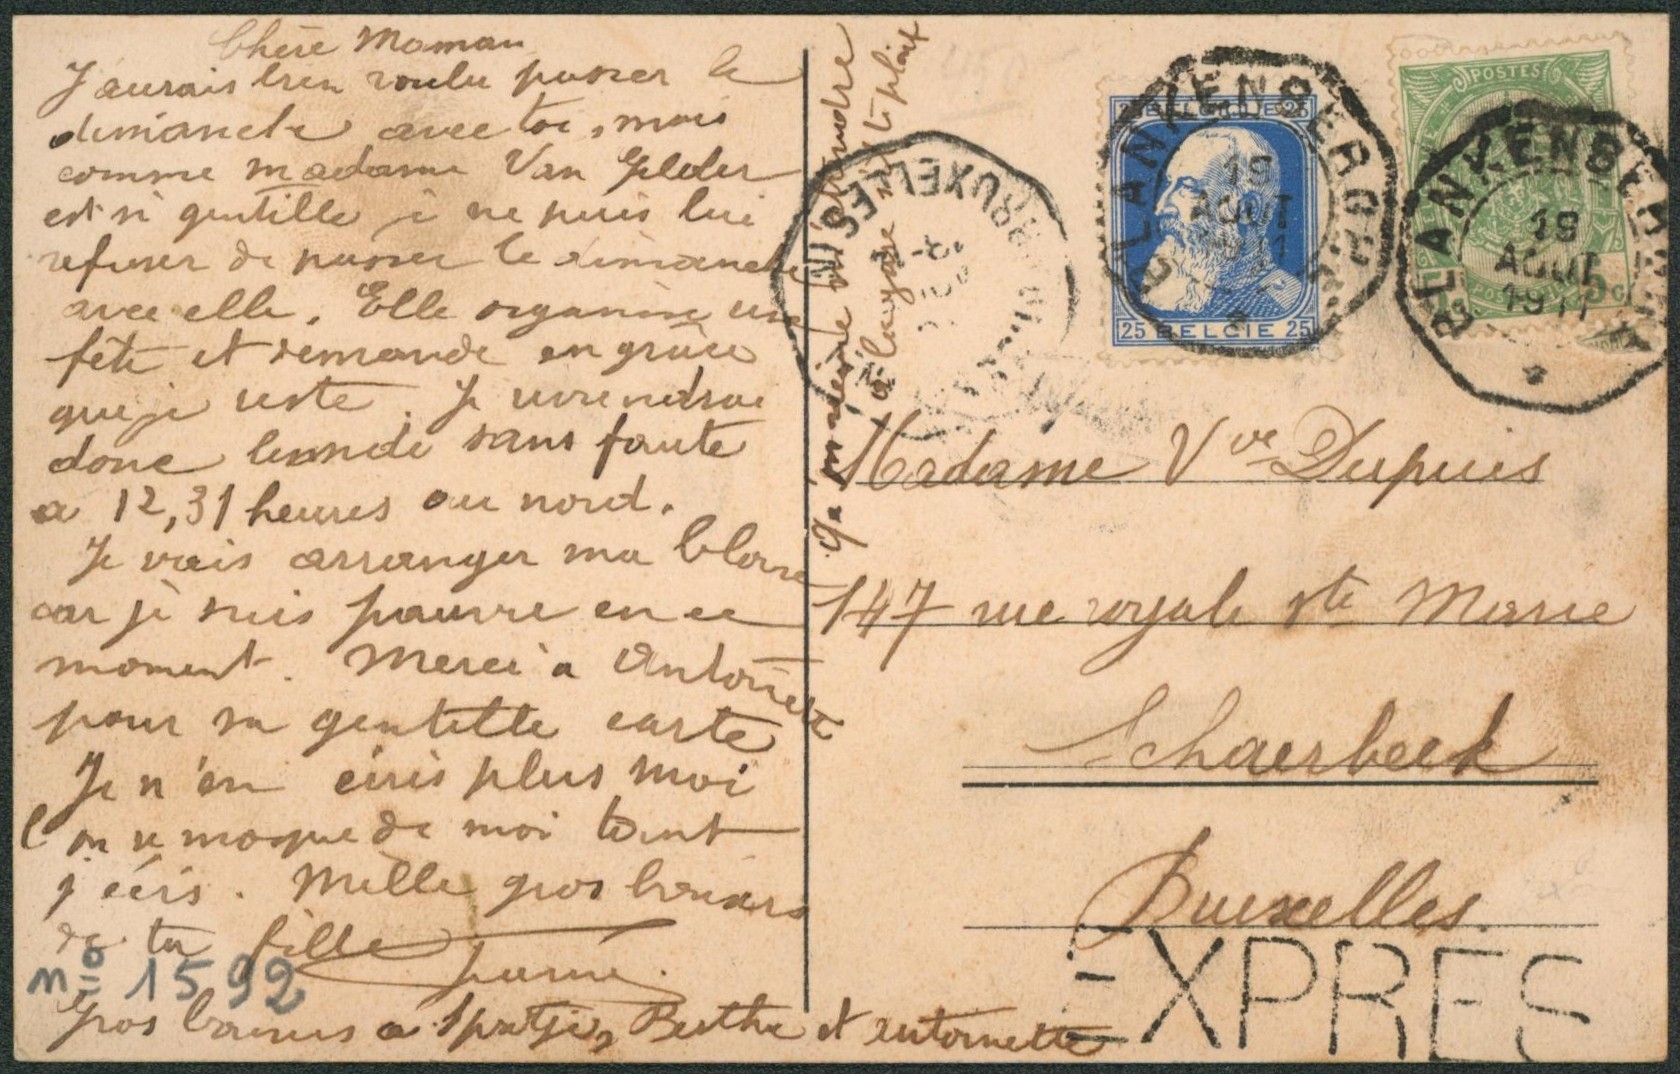 Chère Maman
J'aurais bien voulu passer le
dimanche avec toi, mais
comme madame Van Gelder
est si gentille je ne puis lui
refuser de passer le dimanche
avec elle. Elle organise une
fête et demande en grâce
que je reste. Je reviendrai
donc lundi sans faute
a 12,31 heures au nord.
Je vais arranger ma blouse
car je suis pauvre en ce
moment. Merci a Antoinette
pour sa gentille carte
Je n'en écris plus moi
l'on se moque de moi tant
j'écris. Mille gros baisers
de ta fille
nº 1592
Gros baisers a Berthe et Antoinette
Que marraine
la s'il te plait
BRUXELLES
BLANKENBERGHE
19
AOUT
1911
25 BELGIE 25
POSTES
BLANKENBERGHE
19
AOUT
1911
5 c
Madame Vve Dupuis
147 rue royale Ste Marie
Schaerbeek
Bruxelles.
EXPRES